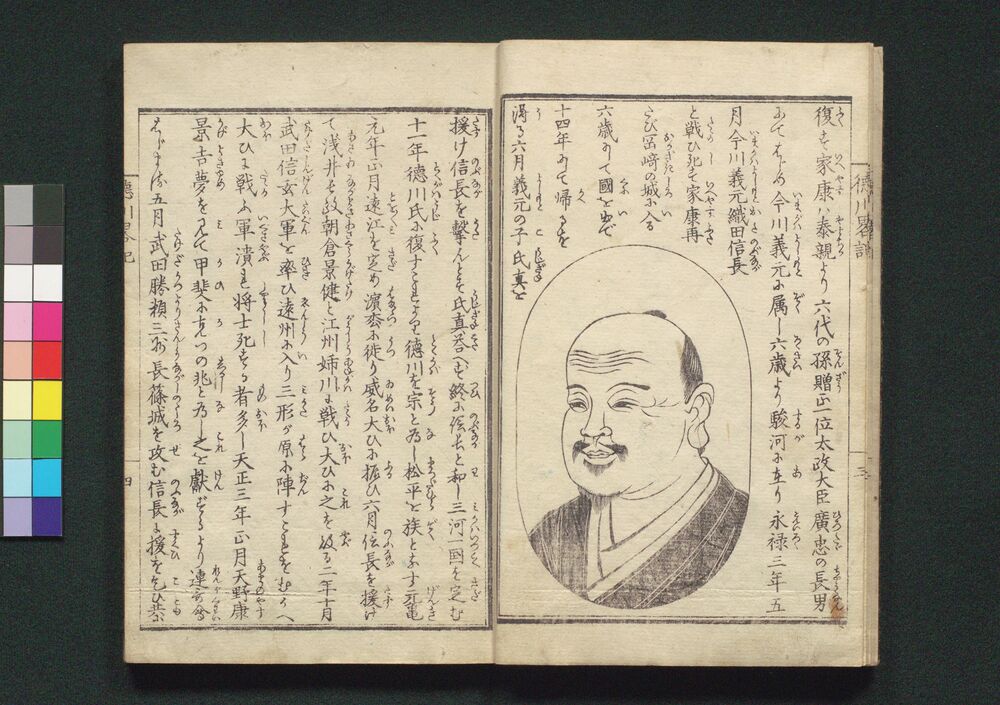 復す家康ハ泰親より六代の孫贈正一位太政大臣廣忠の長男
にてはじめ今川義元に属し六歳より駿河に在り永禄三年五
月今川義元織田信長
と戦ひ死す家康再
たび岡崎の城に入る
六歳にして國を出で
十四年にて帰るを
得る六月義元の子氏真を
援け信長を撃んとす氏真答へむ終に信長と和し三河一國を定む
十一年徳川氏に復す徳川を宗と為し松平を族とす元亀
元年正月遠江を定め濱松に徙り威名大ひに振ひ六月信長を援け
て浅井長政朝倉景健と江州姉川に戦ひ大ひに之を破る二年十月
武田信玄大軍を率ひ遠州に入り三形が原に陣す
大ひに戦ふ軍潰れ将士死する者多し天正三年正月天野康
景吉夢を見て甲斐に克つの兆と為し之を獻ずるより連歌會
はじまる五月武田勝頼三州長篠城を攻む信長に援を乞ひ
徳川畧記
四